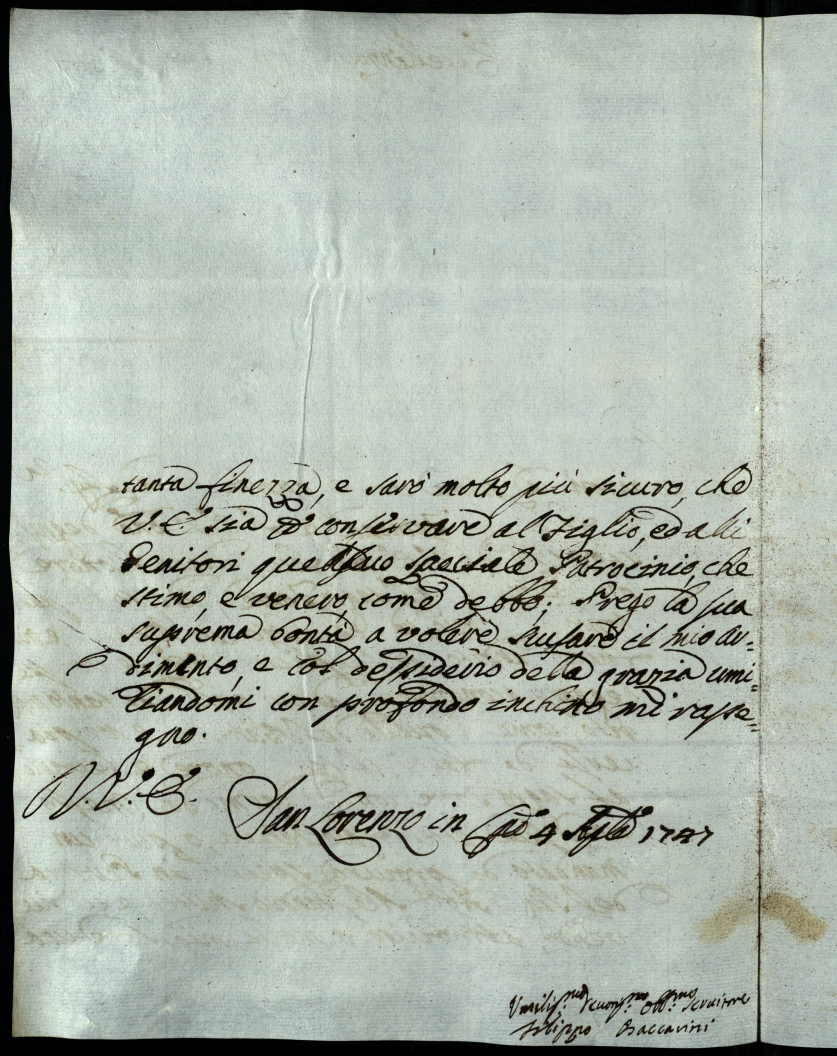 tanta finezza, e sarò molto più sicuro, che
V. E. sia p conservare al Figlio, ed alli
Genitori quel suo speciale Patrocinio, che
stimo, e venero, come debbo; Prego la sua
suprema bontà a volere scusare il mio ar=
dimento, e col desiderio della grazia umi=
liandomi con profondo inchino mi rasse=
gno.
D. V. E.
San Lorenzo in 4 1747
Umiliss.mo Devotiss.mo Obb.mo Servitore
Filippo Baccarini